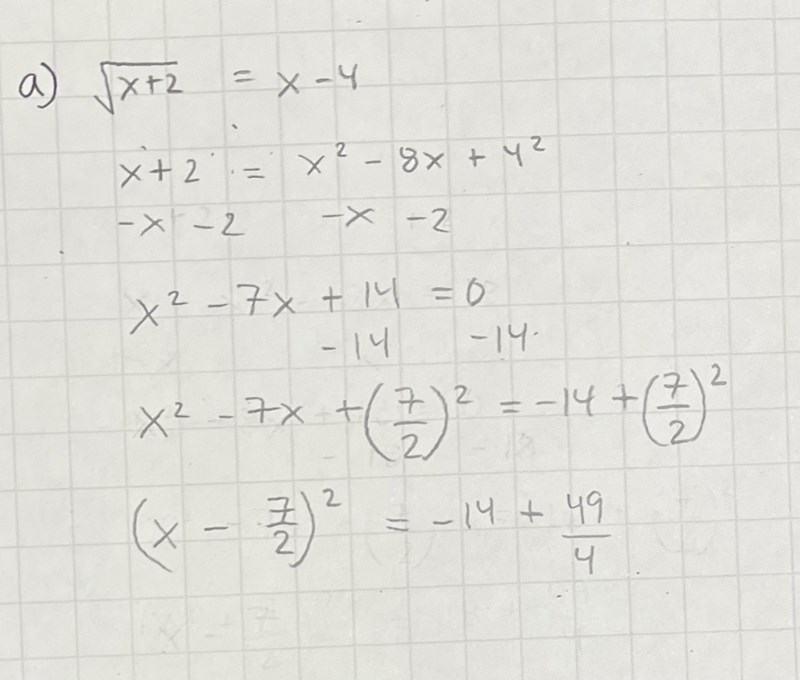 a) √(x+2) = x - 4
x + 2 = x² - 8x + 4²
-x -2 -x -2
x² - 7x + 14 = 0
-14 -14
x² - 7x + (7/2)² = -14 + (7/2)²
(x - 7/2)² = -14 + 49/4